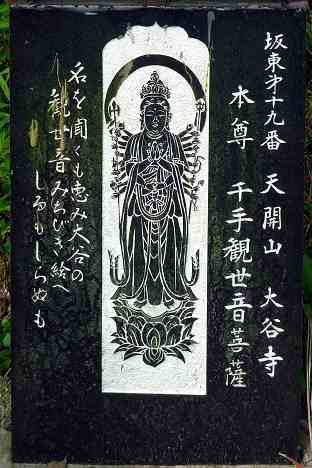 坂東第十九番 天開山 大谷寺
本尊 千手觀世音菩薩
名を聞くも恵み大谷の
觀世音みちびき給へ
しるもしらぬも